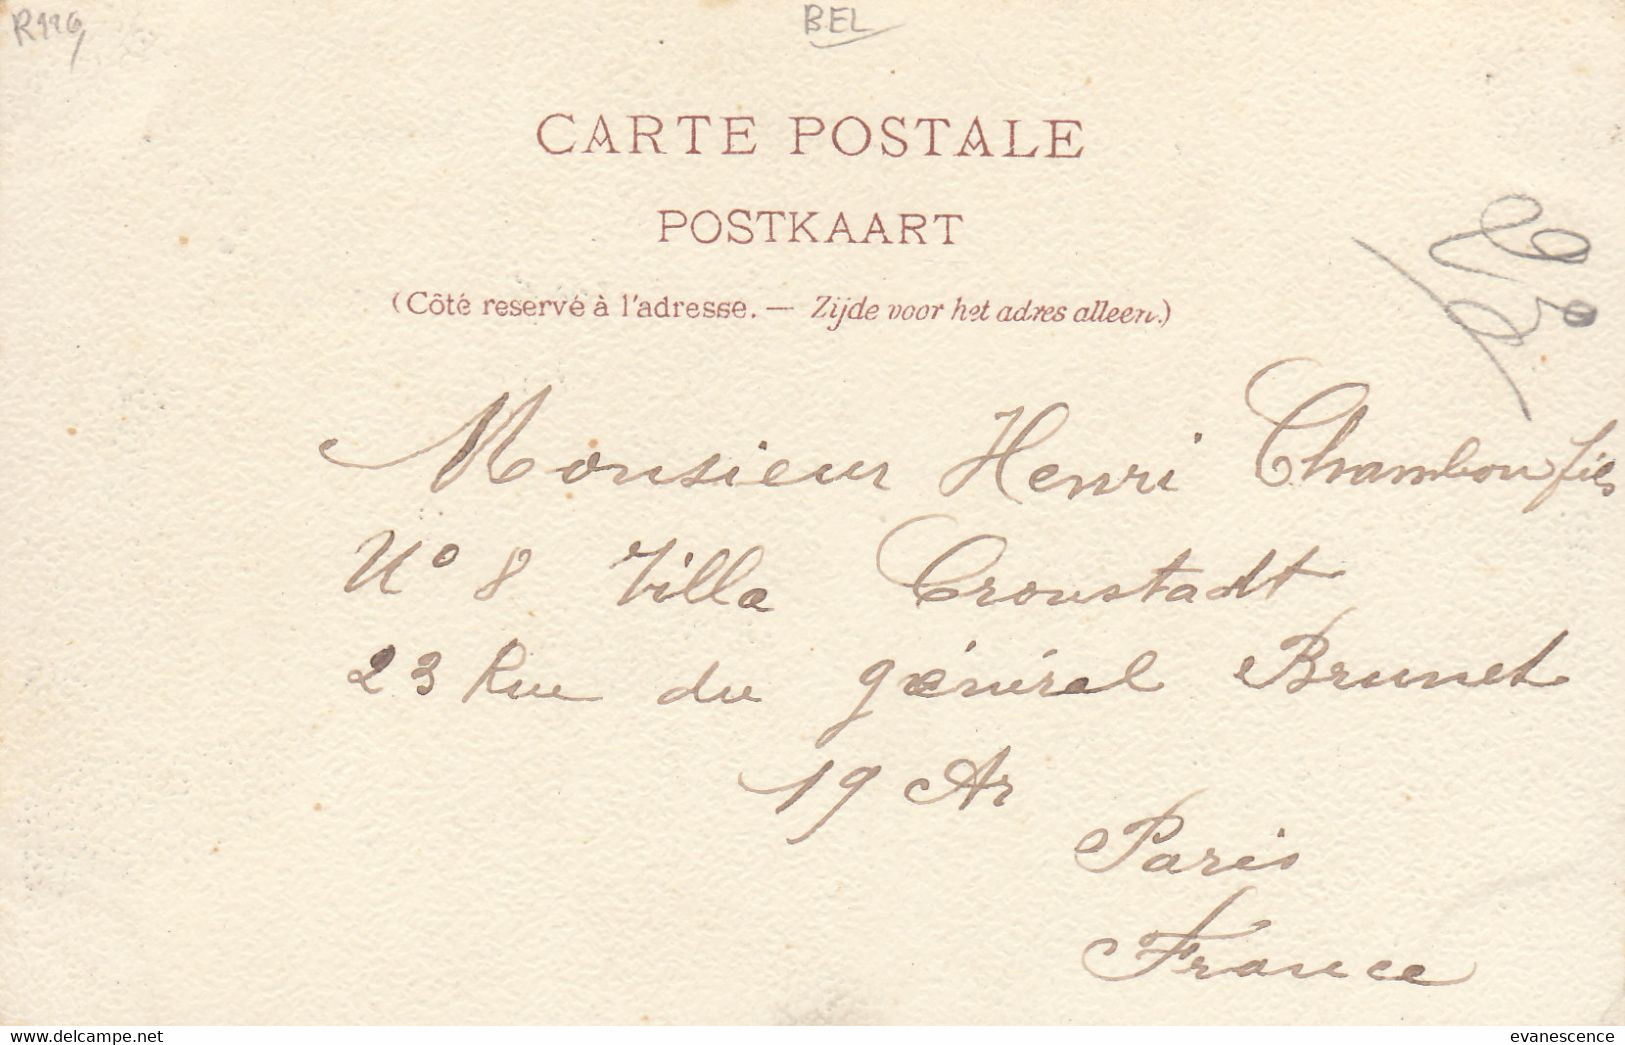 R116
BEL
CARTE POSTALE
POSTKAART
(Côté reservé à l'adresse. — Zijde voor het adres alleen.)
Monsieur Henri Chambon fils
No 8 Villa Cronstadt
23 Rue du général Brunet
19 Ar
Paris
France
www.delcampe.net
evanescence